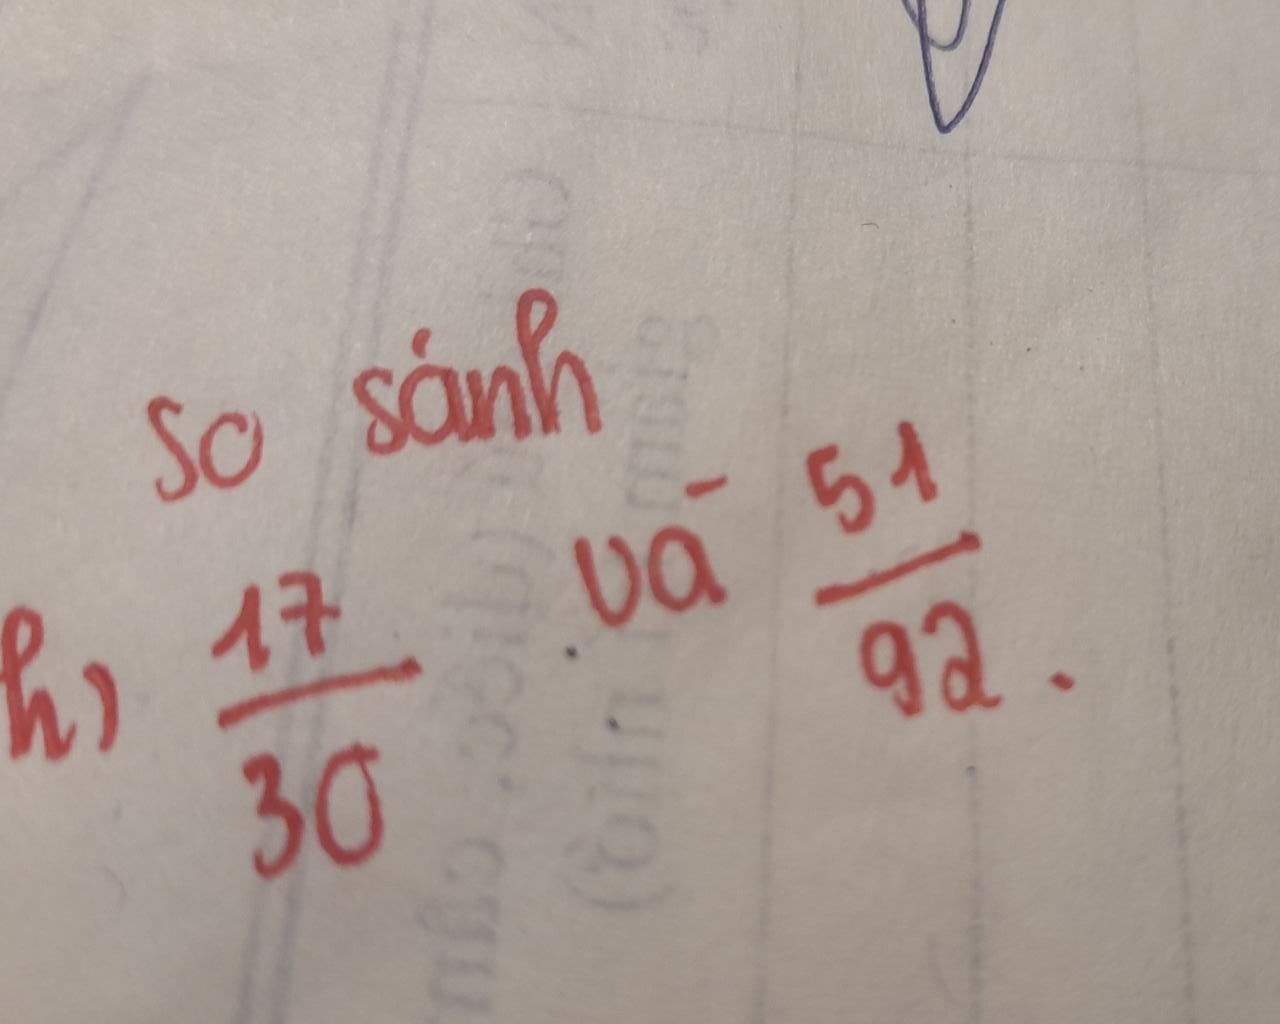 so sánh
h) 17/30 và 51/92.